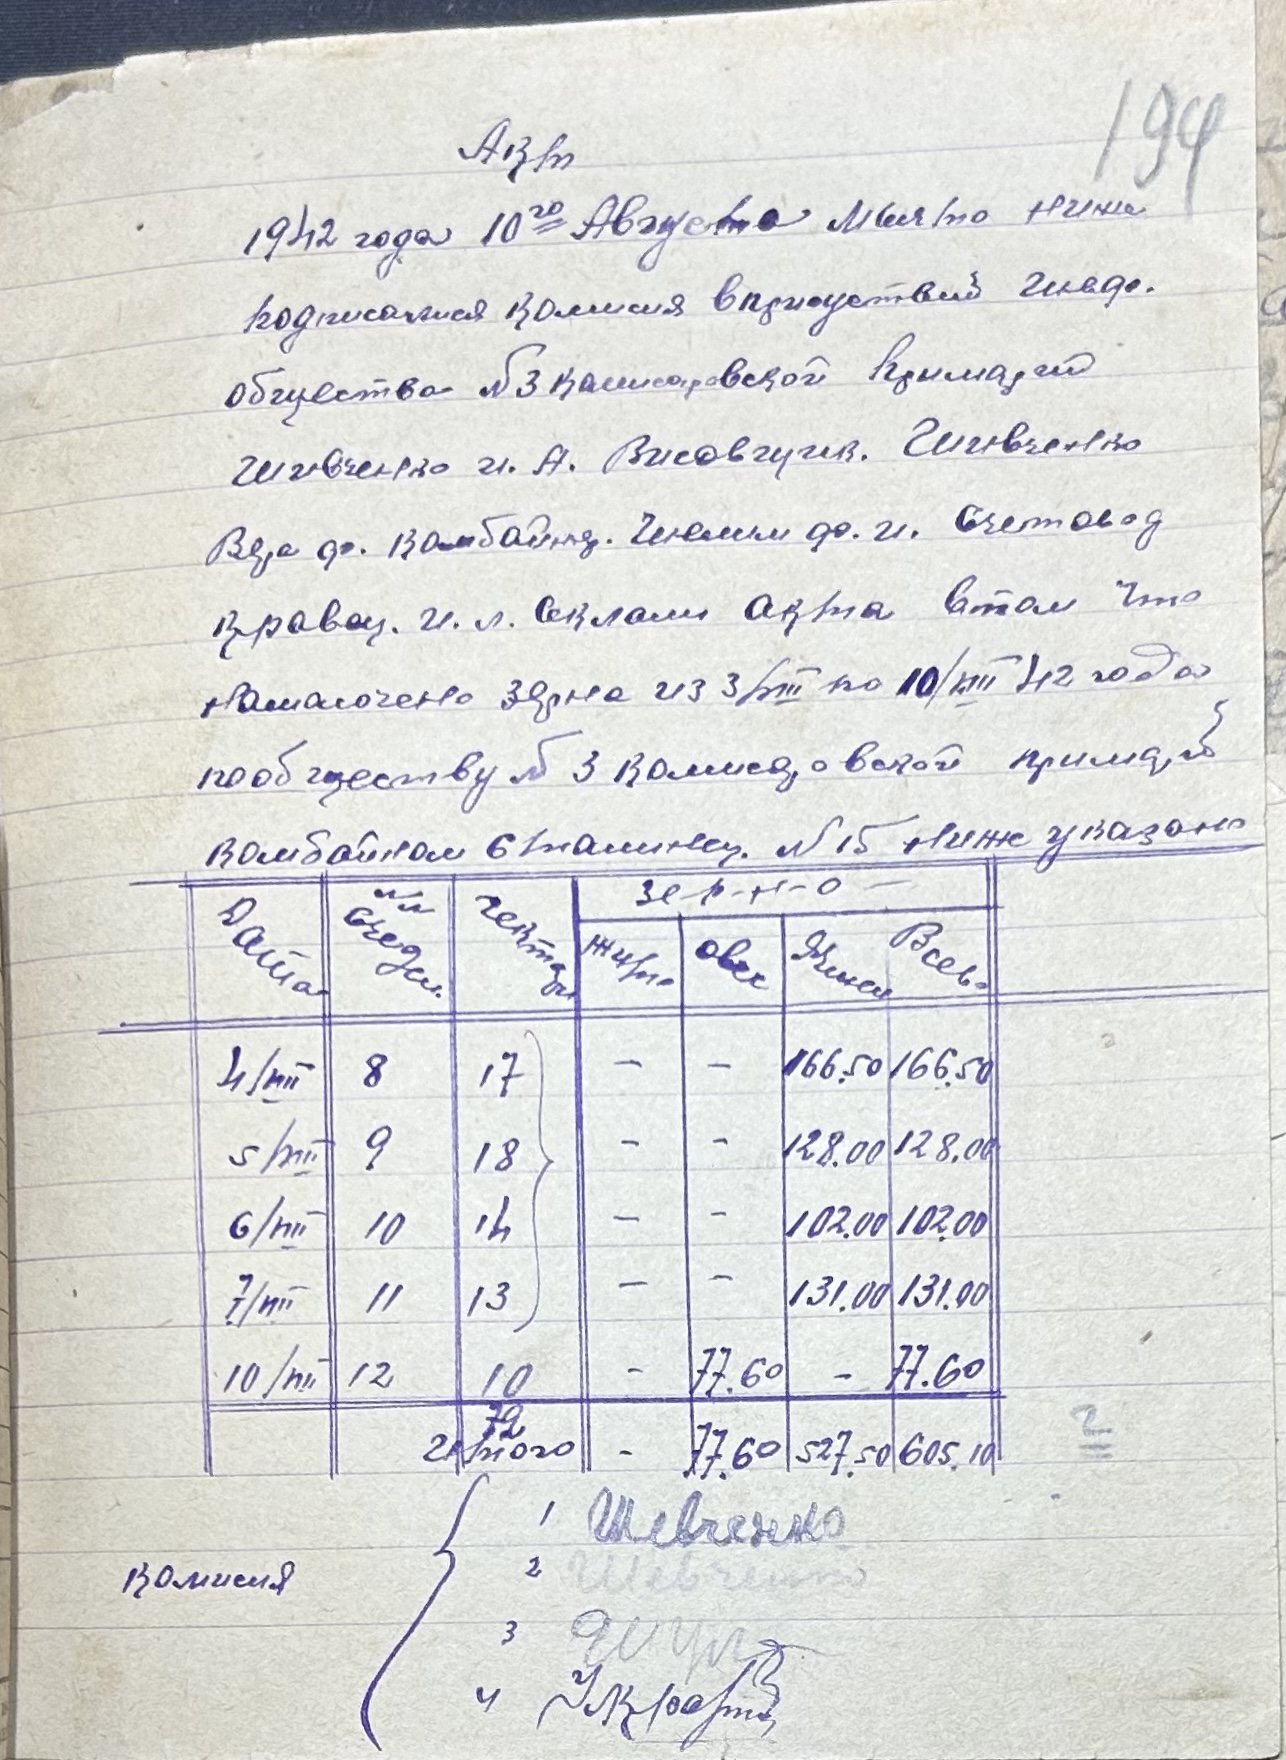 194
Акт
1942 года 10го Августа Мыято ниже
подписамися комисия вприсуствий Шеф.
общества №3 комисаровской примарий
Шевченко И. А. Шевченко
комбайнер. ф. И. Счетовод
кравец. И. Л. Склали акта втом что
намолочено зерна из 3/VIII по 10/VIII 42 года
пообществу № 3 комисаровской примарий
комбайном Сталинец. № 15 ниже указано
Дата
№№ Сведен.
гектары
Зе-р-н-о-
Жито
Овес
Ячмен
Всево
4/VIII 8 17 - - 166.50 166.50
5/VIII 9 18 - - 128.00 128.00
6/VIII 10 14 - - 102.00 102.00
7/VIII 11 13 - - 131.00 131.00
10/VIII 12 10 - 77.60 - 77.60
72
Итого - 77.60 527.50 605.10
2
Комисия
1 Шевченко
2 Шевченко
3
4